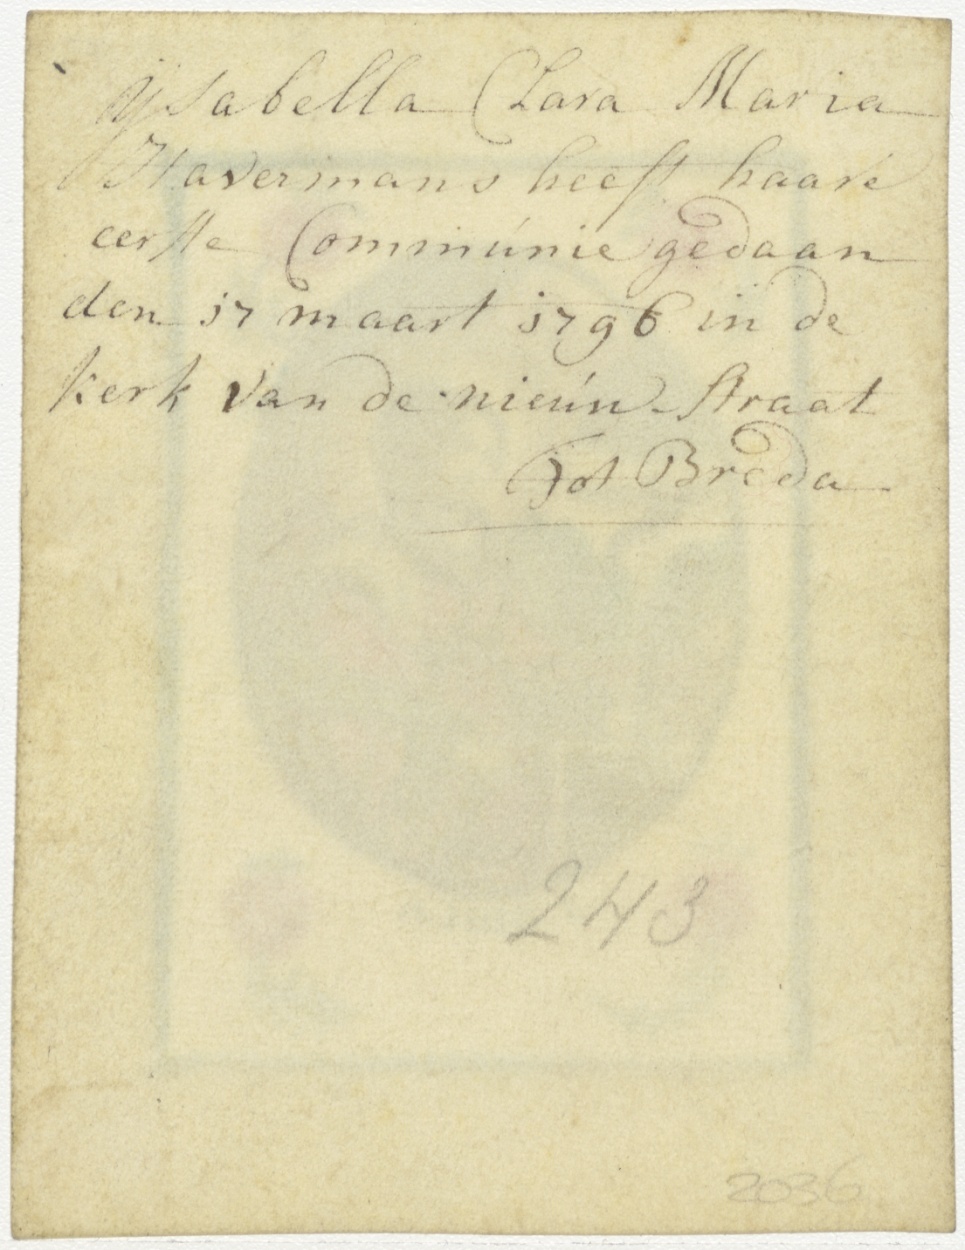 Ysabella Clara Maria
Havermans heeft haare
eerste Communie gedaan
den 17 maart 1796 in de
kerk van de nieúw straat
Tot Breda
243
2036